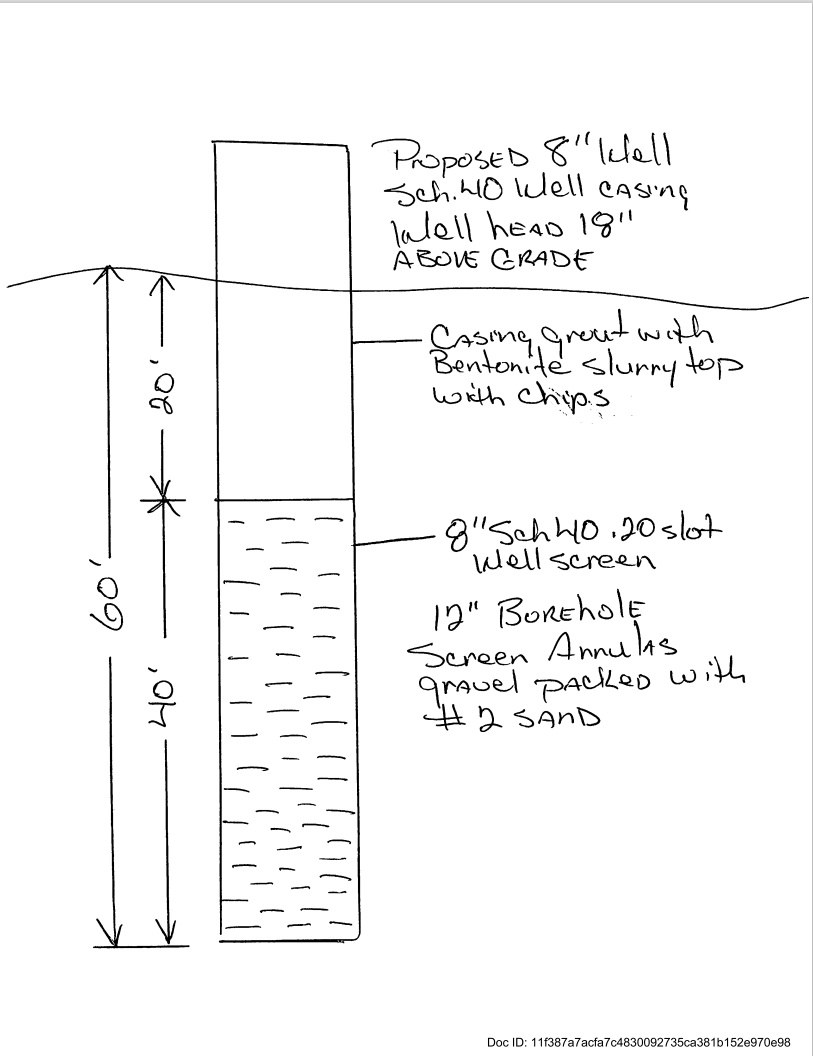 Proposed 8" Well
Sch.40 Well casing
Well head 18"
ABOVE GRADE
Casing grout with
Bentonite slurry top
with chips
20'
8" Sch 40 .20 slot
Well screen
60'
12" Borehole
Screen Annulas
gravel packed with
# 2 SAND
40'
Doc ID: 11f387a7acfa7c4830092735ca381b152e970e98